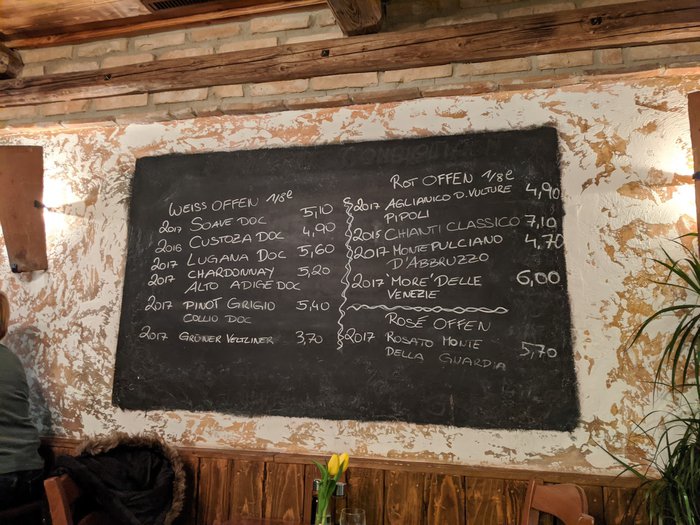 WEISS OFFEN 1/8l
2017 SOAVE DOC 5,10
2016 CUSTOZA DOC 4,90
2017 LUGANA DOC 5,60
2017 CHARDONNAY 5,20
ALTO ADIGE DOC
2017 PINOT GRIGIO 5,40
COLLIO DOC
2017 GRÜNER VELTLINER 3,70
ROT OFFEN 1/8l
2017 AGLIANICO D. VULTURE 4,90
PIPOLI
2015 CHIANTI CLASSICO 7,10
2017 MONTEPULCIANO 4,70
D'ABBRUZZO
2017 'MORE' DELLE 6,00
VENEZIE
ROSÉ OFFEN
2017 ROSATO MONTE 5,70
DELLA GUARDIA